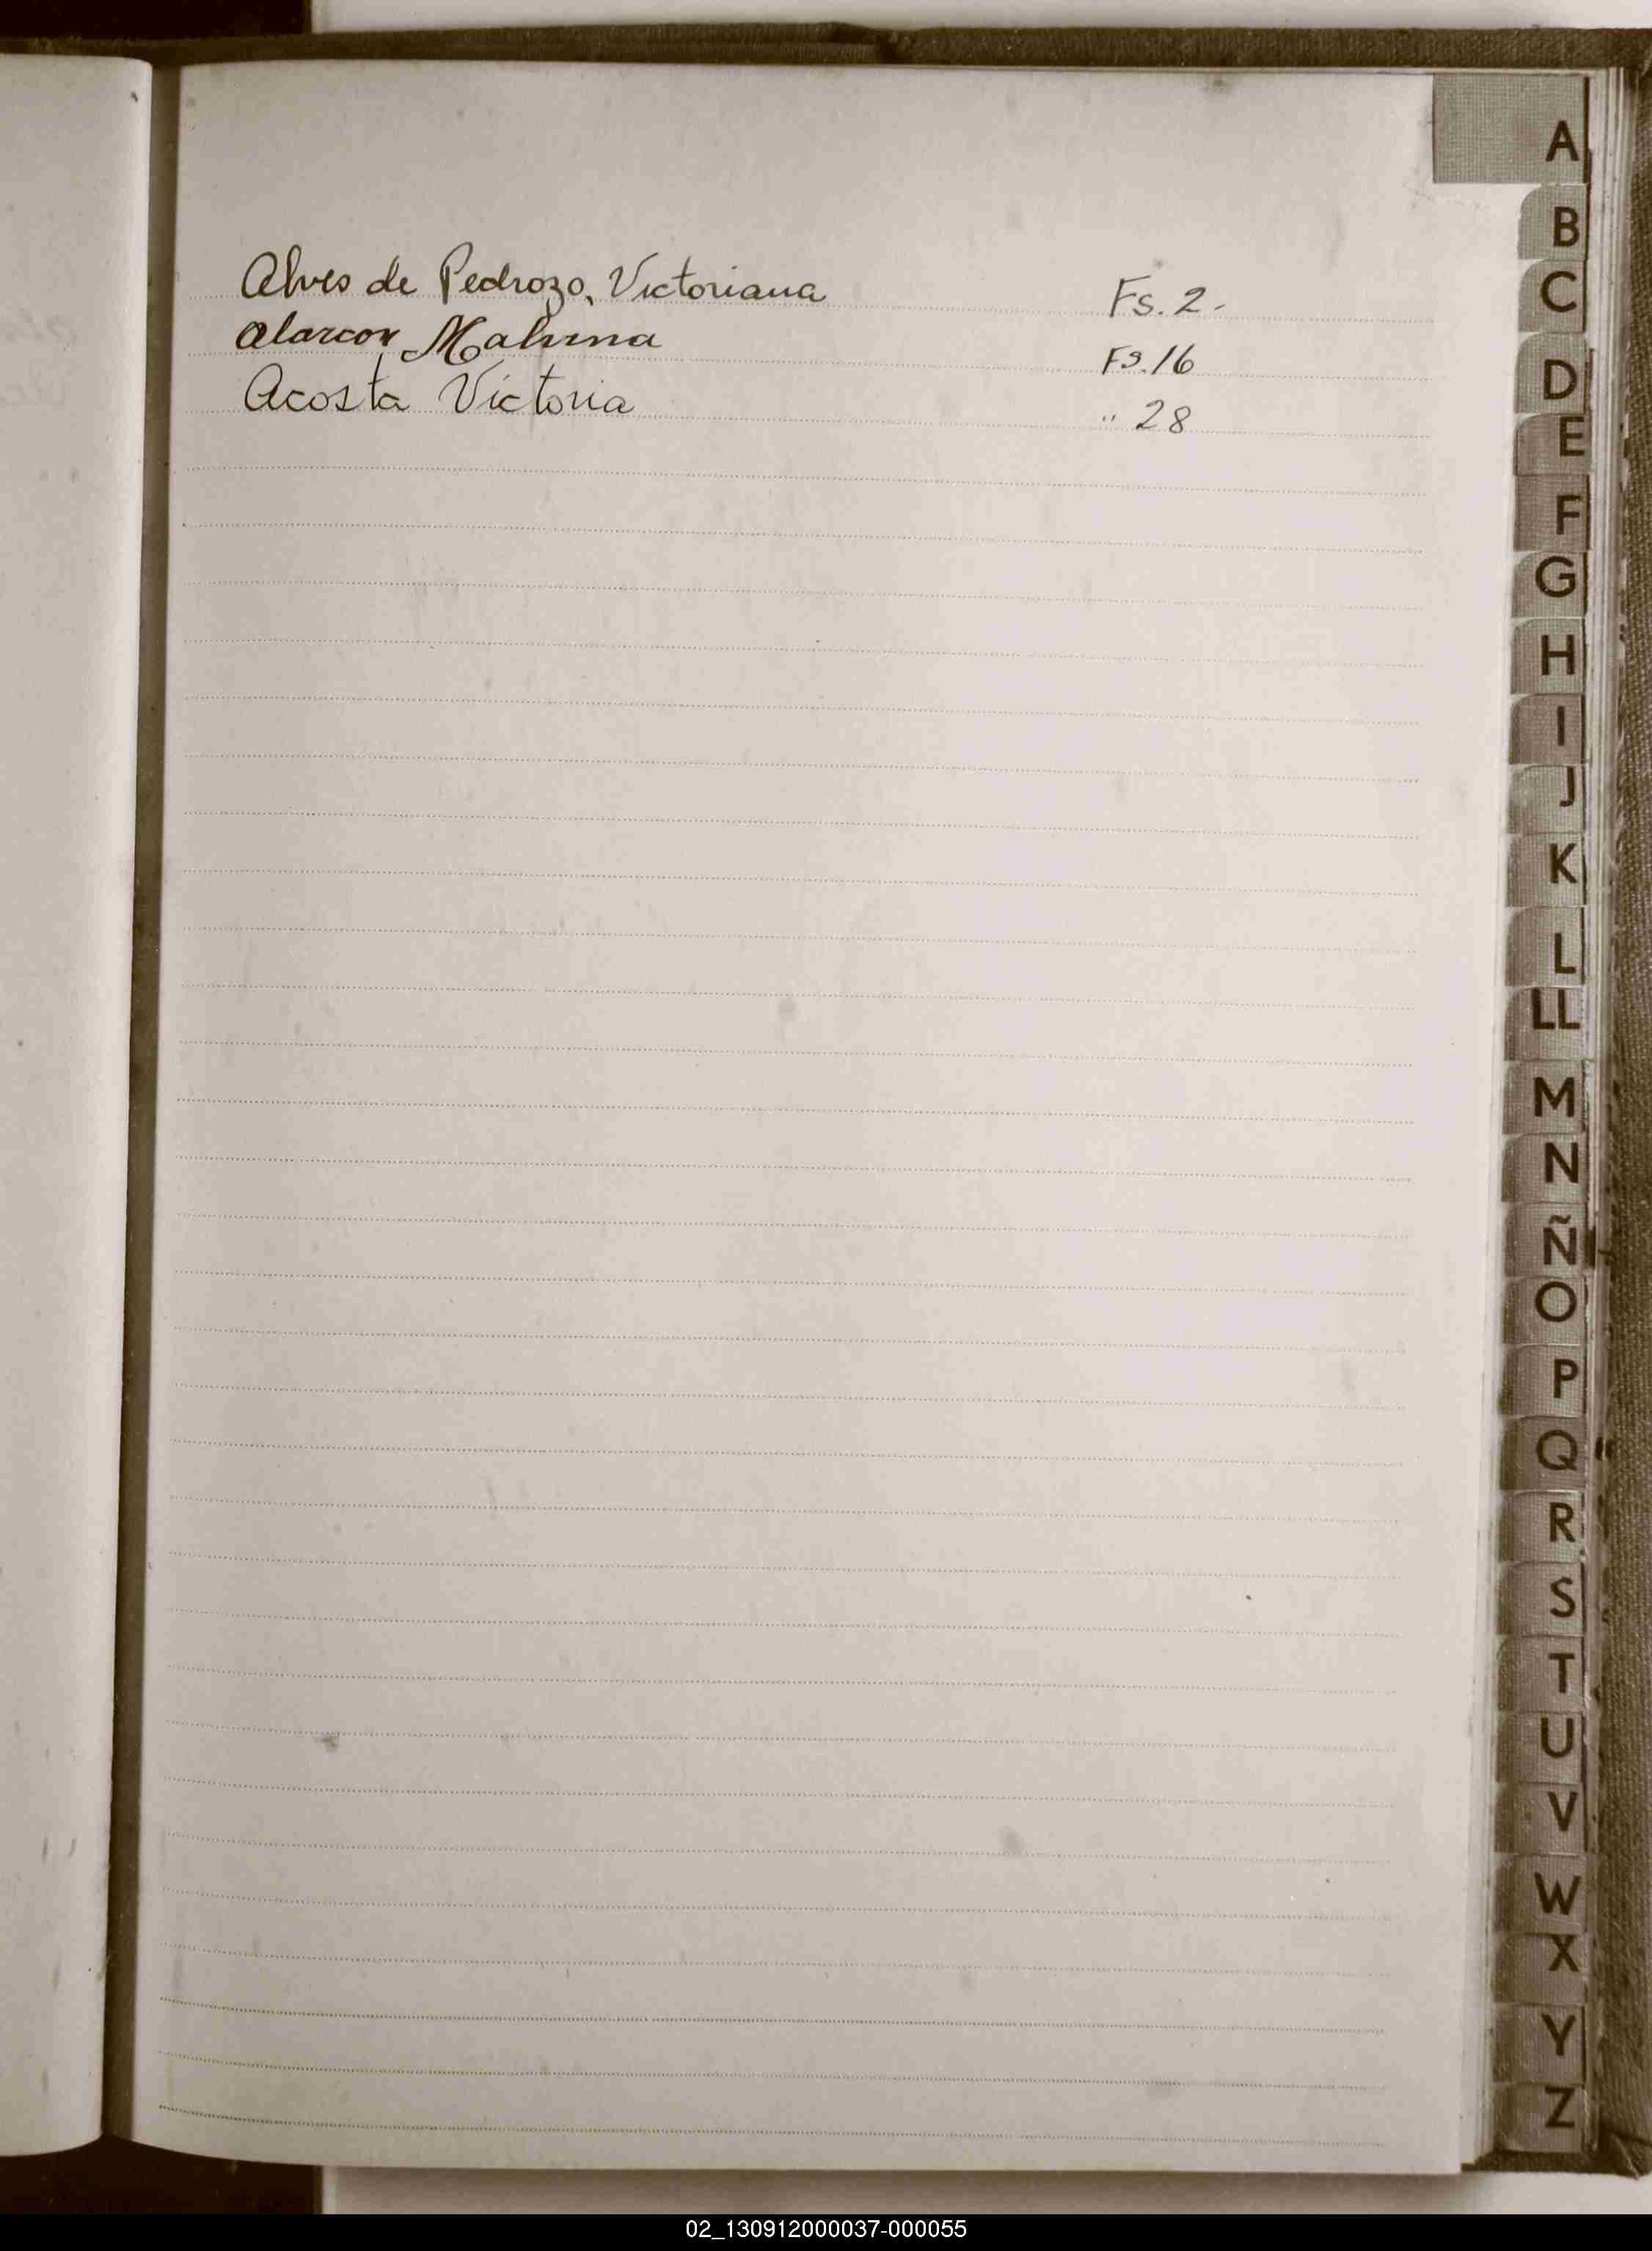 Alves de Pedrozo, Victoriana Fs. 2-
Alarcon Malvina Fs. 16
Acosta Victoria " 28
A
B
C
D
E
F
G
H
I
J
K
L
LL
M
N
Ñ
O
P
Q
R
S
T
U
V
W
X
Y
Z
02_130912000037-000055